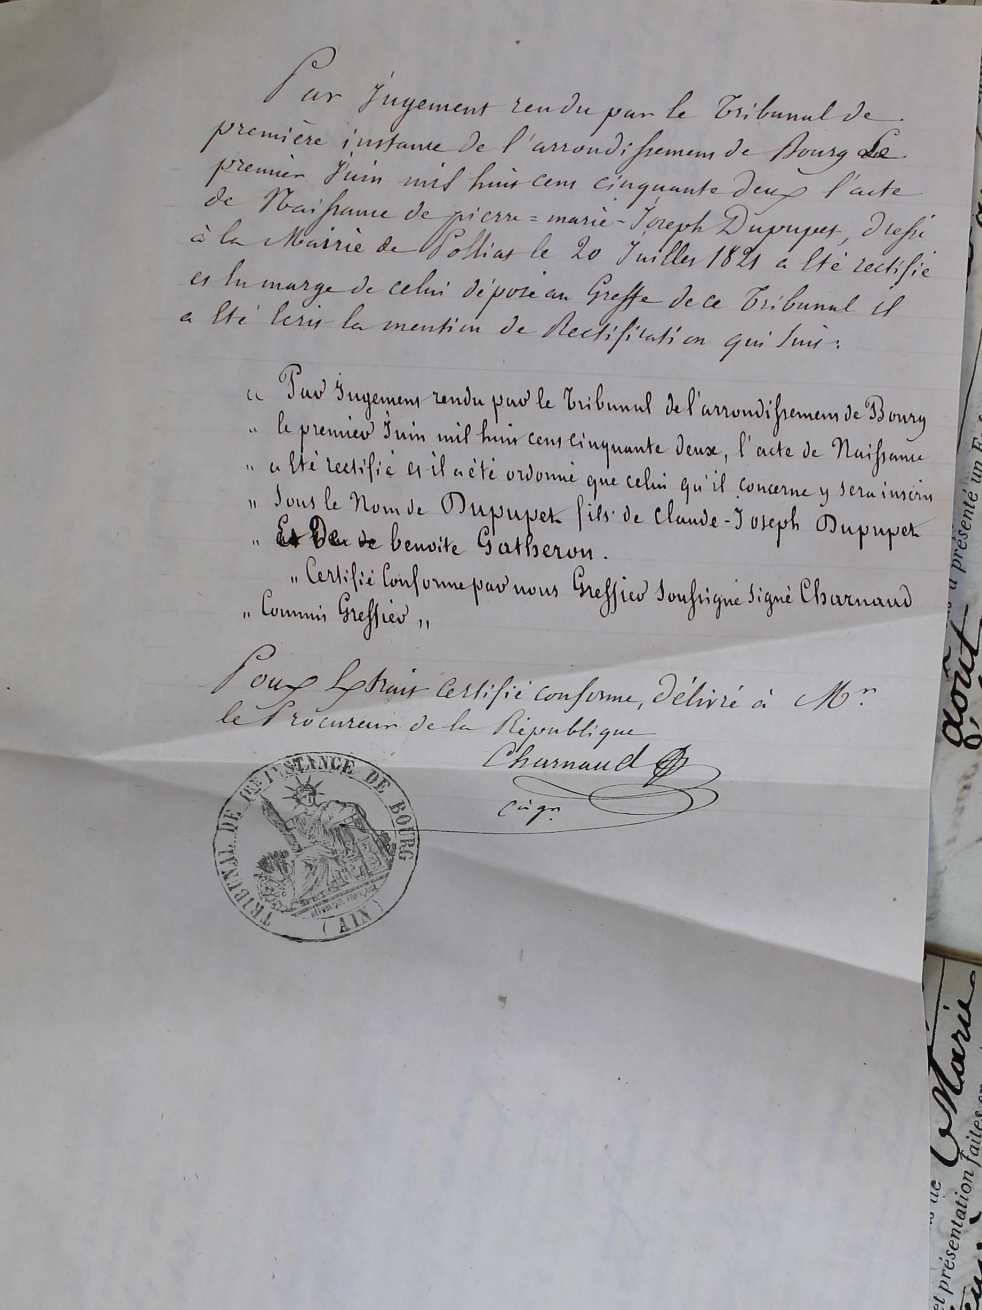 Par Jugement rendu par le Tribunal de
première instance de l'arrondissement de Bourg Le
premier Juin mil huit cent cinquante deux l'acte
de Naissance de pierre = marie - Joseph Dupupet, dressé
à la Mairie de Polliat le 20 Juillet 1821 a été rectifié
et En marge de celui déposé au Greffe de ce Tribunal il
a Eté Ecrit la mention de Rectification qui suit :
« Par Jugement rendu par le Tribunal de l'arrondissement de Bourg
" le premier Juin mil huit cent cinquante deux, l'acte de Naissance
" a Eté rectifié et il a été ordonné que celui qu'il concerne y sera inscrit
" Sous le Nom de Dupupet fils de Claude - Joseph Dupupet
" Et De benoite Gatheron.
" Certifié Conforme par nous Greffier Soussigné Signé Charnaud
" Commis Greffier "
Pour Extrait Certifié conforme, Délivré à Mr
le Procureur de la République
Charnaud
TRIBUNAL DE 1ERE INSTANCE DE BOURG
(AIN)
août
présenté un
Marie
de
et présentation faites